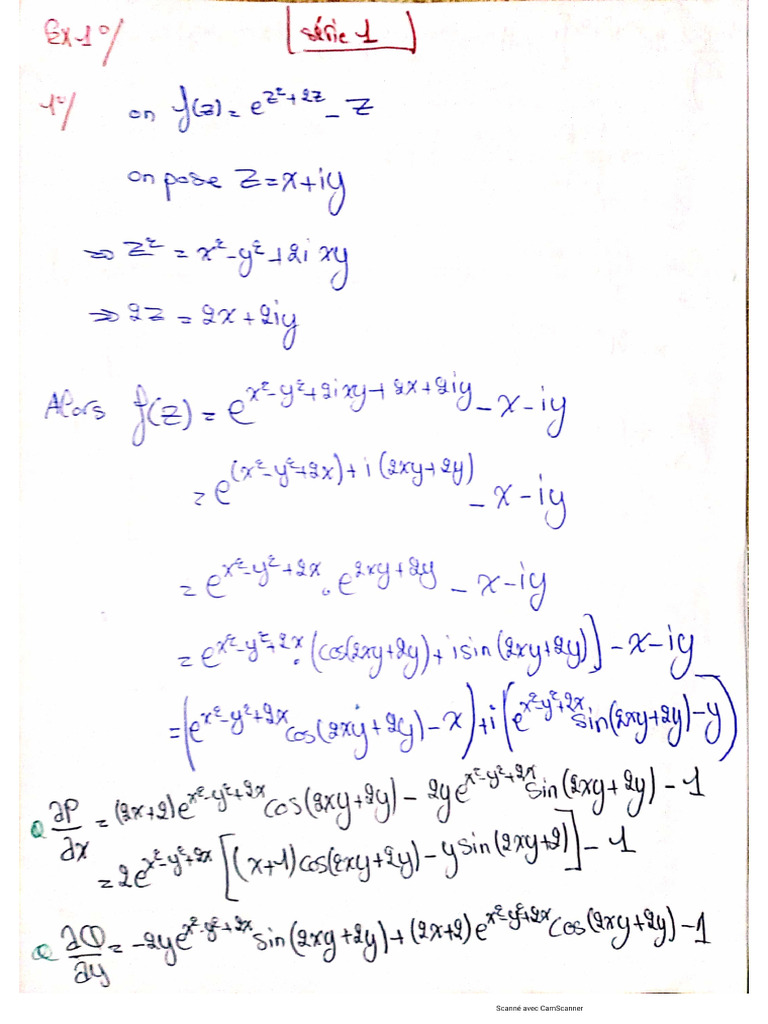 Ex-1°/
série 1
1°/ on f(z) = e^{z²+2z} - z
on pose z = x+iy
⇒ z² = x²-y²+2i xy
⇒ 2z = 2x+2iy
Alors f(z) = e^{x²-y²+2ixy+2x+2iy} - x - iy
= e^{(x²-y²+2x)+i(2xy+2y)} - x - iy
= e^{x²-y²+2x} . e^{2xy+2y} - x - iy
= e^{x²-y²+2x} . (cos(2xy+2y)+i sin(2xy+2y)] - x - iy
= (e^{x²-y²+2x} cos(2xy+2y) - x) + i(e^{x²-y²+2x} sin(2xy+2y) - y)
∂P/∂x = (2x+2)e^{x²-y²+2x} cos(2xy+2y) - 2ye^{x²-y²+2x} sin(2xy+2y) - 1
= 2e^{x²-y²+2x} [(x+1)cos(2xy+2y) - y sin(2xy+2)] - 1
∂Q/∂y = -2ye^{x²-y²+2x} sin(2xy+2y) + (2x+2)e^{x²-y²+2x} cos(2xy+2y) - 1
Scanné avec CamScanner